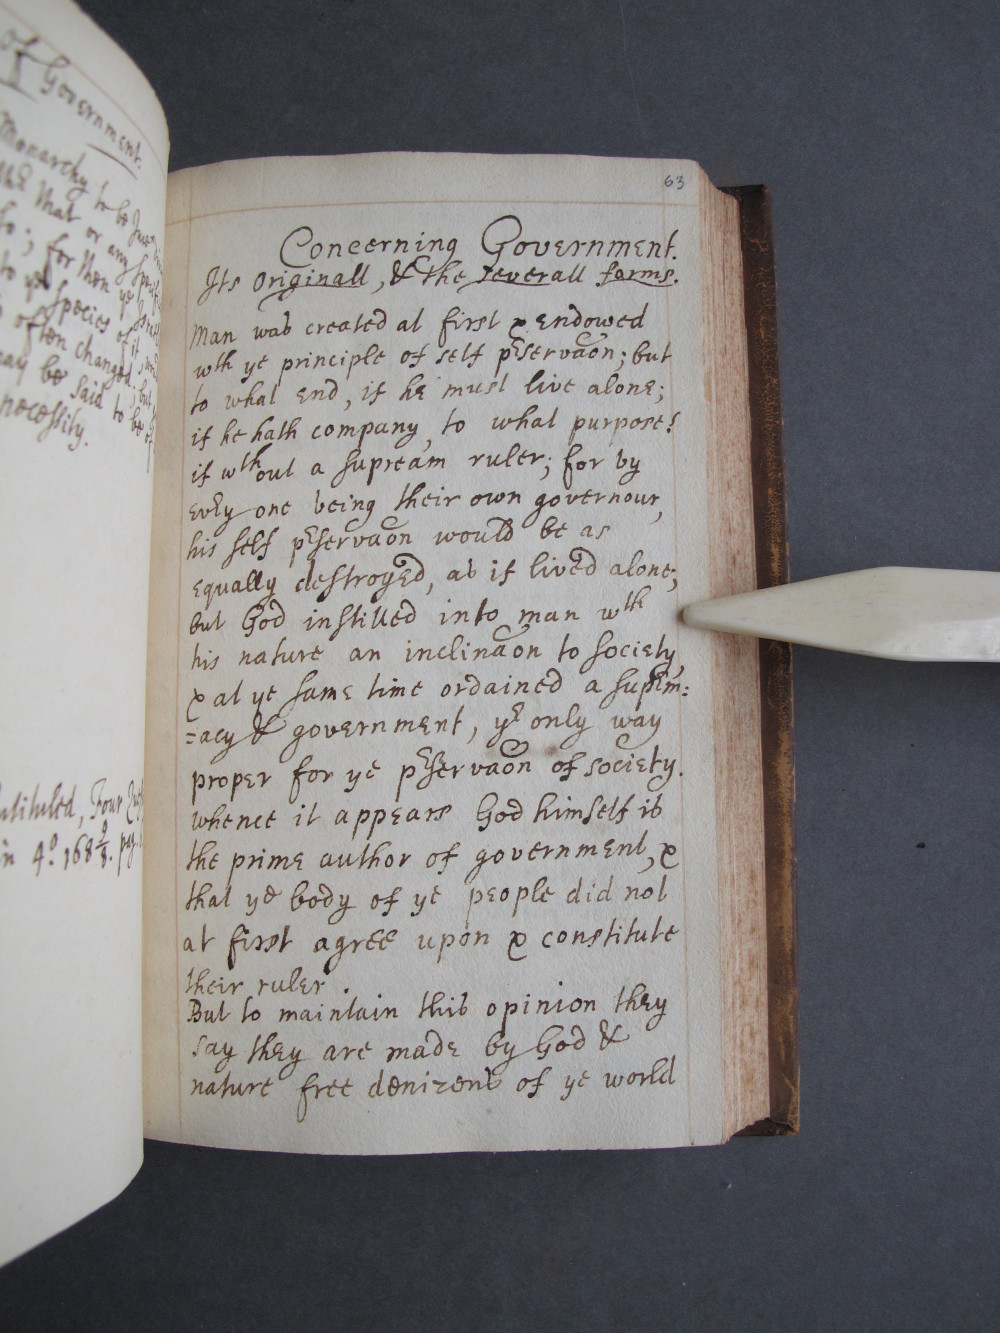 of Government.
Monarchy to be
that or any
so; for then ye
to ye species of it
often changed; but
may be said to be of
necessity.
Four
in 4o. 168 8/9. pag.
63
Concerning Government.
Its originall, & the severall forms.
Man was created at first & endowed
wth ye principle of self prservaon; but
to what end, if he must live alone;
if he hath company, to what purpose!
if wthout a supream ruler; for by
evry one being their own governour,
his self prservaon would be as
equally destroyed, as if lived alone;
but God instilled into man wth
his nature an inclinaon to society,
& at ye same time ordained a suprem:
=acy & government, ye only way
proper for ye prservaon of society.
whence it appears God himself is
the prime author of government, &
that ye body of ye people did not
at first agree upon & constitute
their ruler.
But to maintain this opinion they
say they are made by God &
nature free denizens of ye world